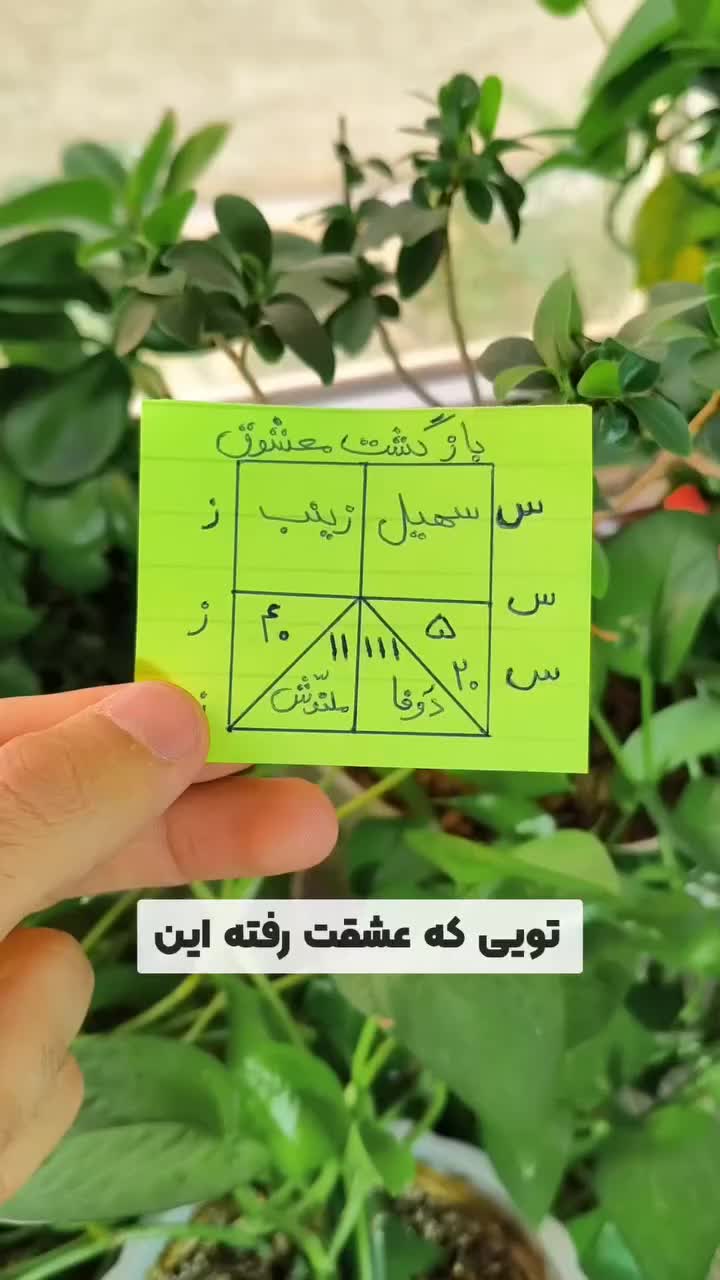 بازگشت معشوق
س سهیل زینب ز
س ۵ ۱۱۱ ۱۱ ۴۰ ز
س ۲۰ دَوفا
تویی که عشقت رفته این